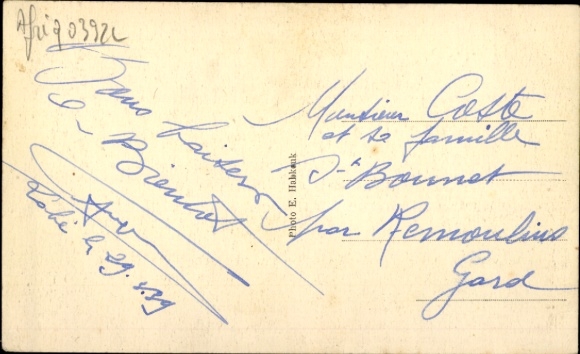 Afriq 0392L
Bons baisers
à Bientôt
Labé le 29.5.39
Photo E. Habkouk
Monsieur Coste
et sa famille
St Bonnet
par Remoulins
Gard